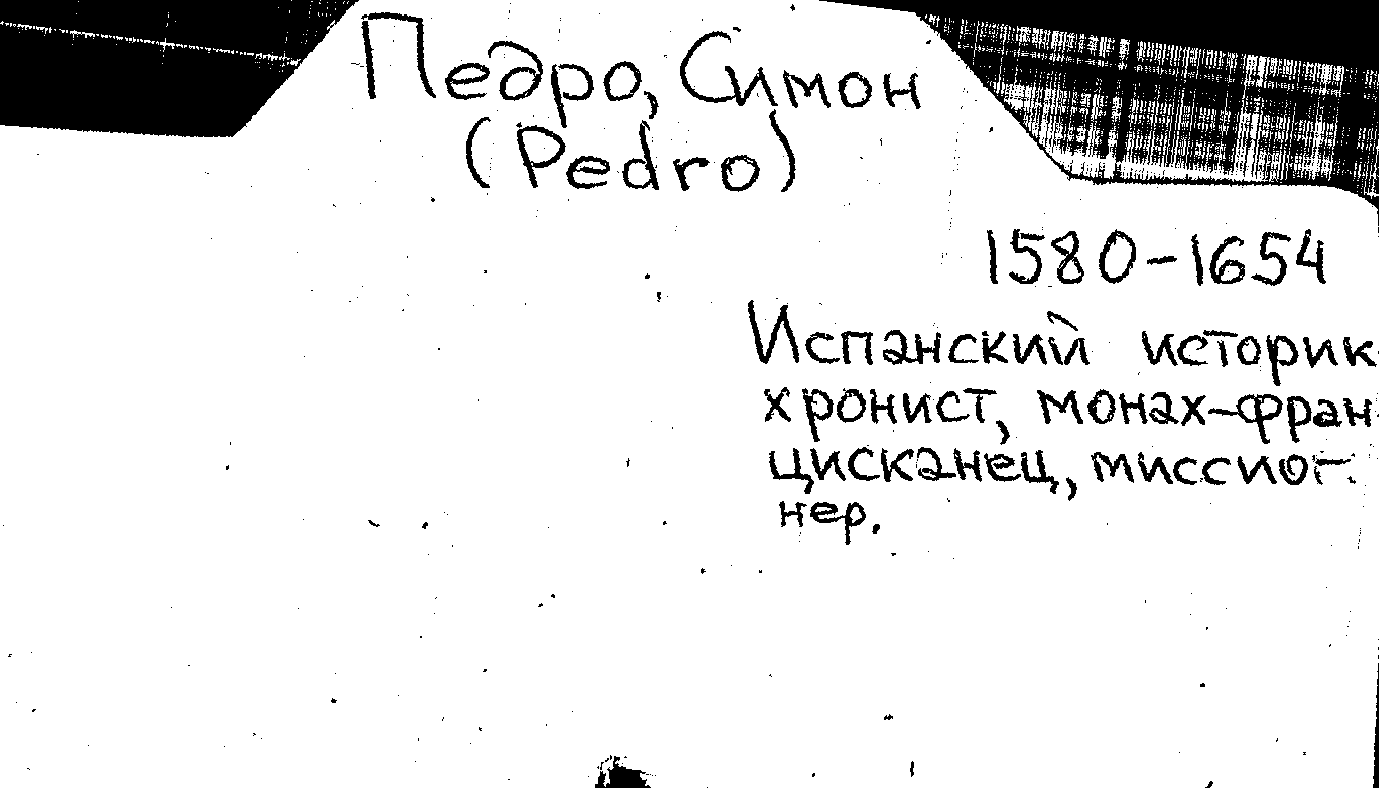 Педро, Симон
(Pedro)
1580-1654
Испанский историк
хронист, монах-фран
цисканец, миссио-
нер.